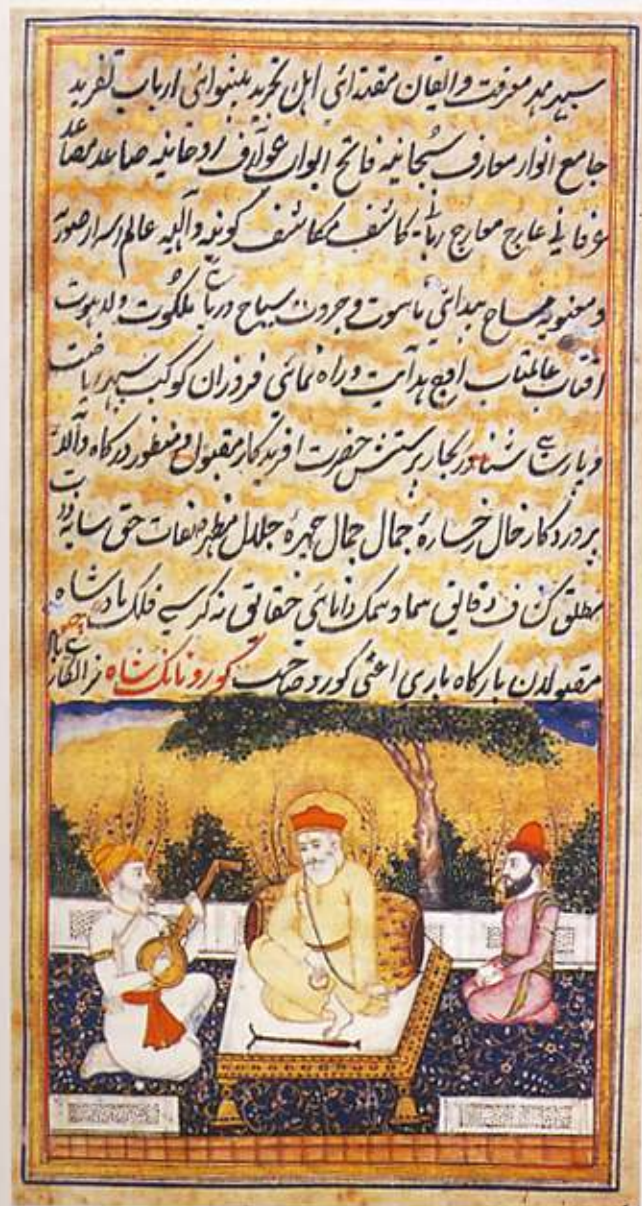 سپهر مهر معرفت و ایقان مقتدائی اهل تجرید پیشوائی ارباب تفرید
جامع انوار معارف سُبحانیه فاتح ابواب عوارف روحانیه صاعد مصاعد
عرفانی عارج معارج ربانی کاشف مکاشف کونیه و آلهیه عالم اسرار صوریه
و معنویه سیاح بیدائی ناسوت و جبروت سیاح دریائی ملکوت و لاهوت
افتاب عالمتاب اوج هدآیت و راه نمائی فروزان کوکب سپهر ریاضت
و پارسائی شناور بحار پرستش حضرت افریدکار مقبول و منظور درکاه والای
پروردکار خال رخسارهٔ جمال جمال چهرهٔ جلال مظهر صفات حق سایه ذات
مطلق کشاف دقایق سما و سمک دانائی حقایق نه کرسی فلک پادشاه
مقبولان بارکاه باری اعنی کورو صاحب کورو نانک شاه